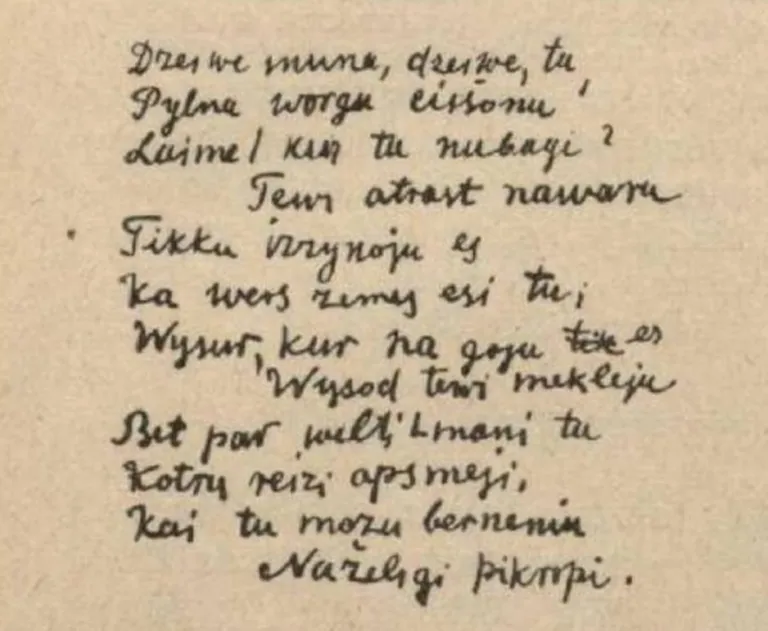 Dzeiwe muna, dzeiwe, tu,
Pylna worgu eissonu!
Laime! kur tu nubagi?
Tewi atrast nawaru
Tikku izzynoju es
Ka wers zemes esi tu;
Wysur, kur na goju es
Wysod tewi mekleju
Bet par welti mani tu
Kotru reizi apsmeji,
Kai tu mozu bernenia
Naželigi pikropi.